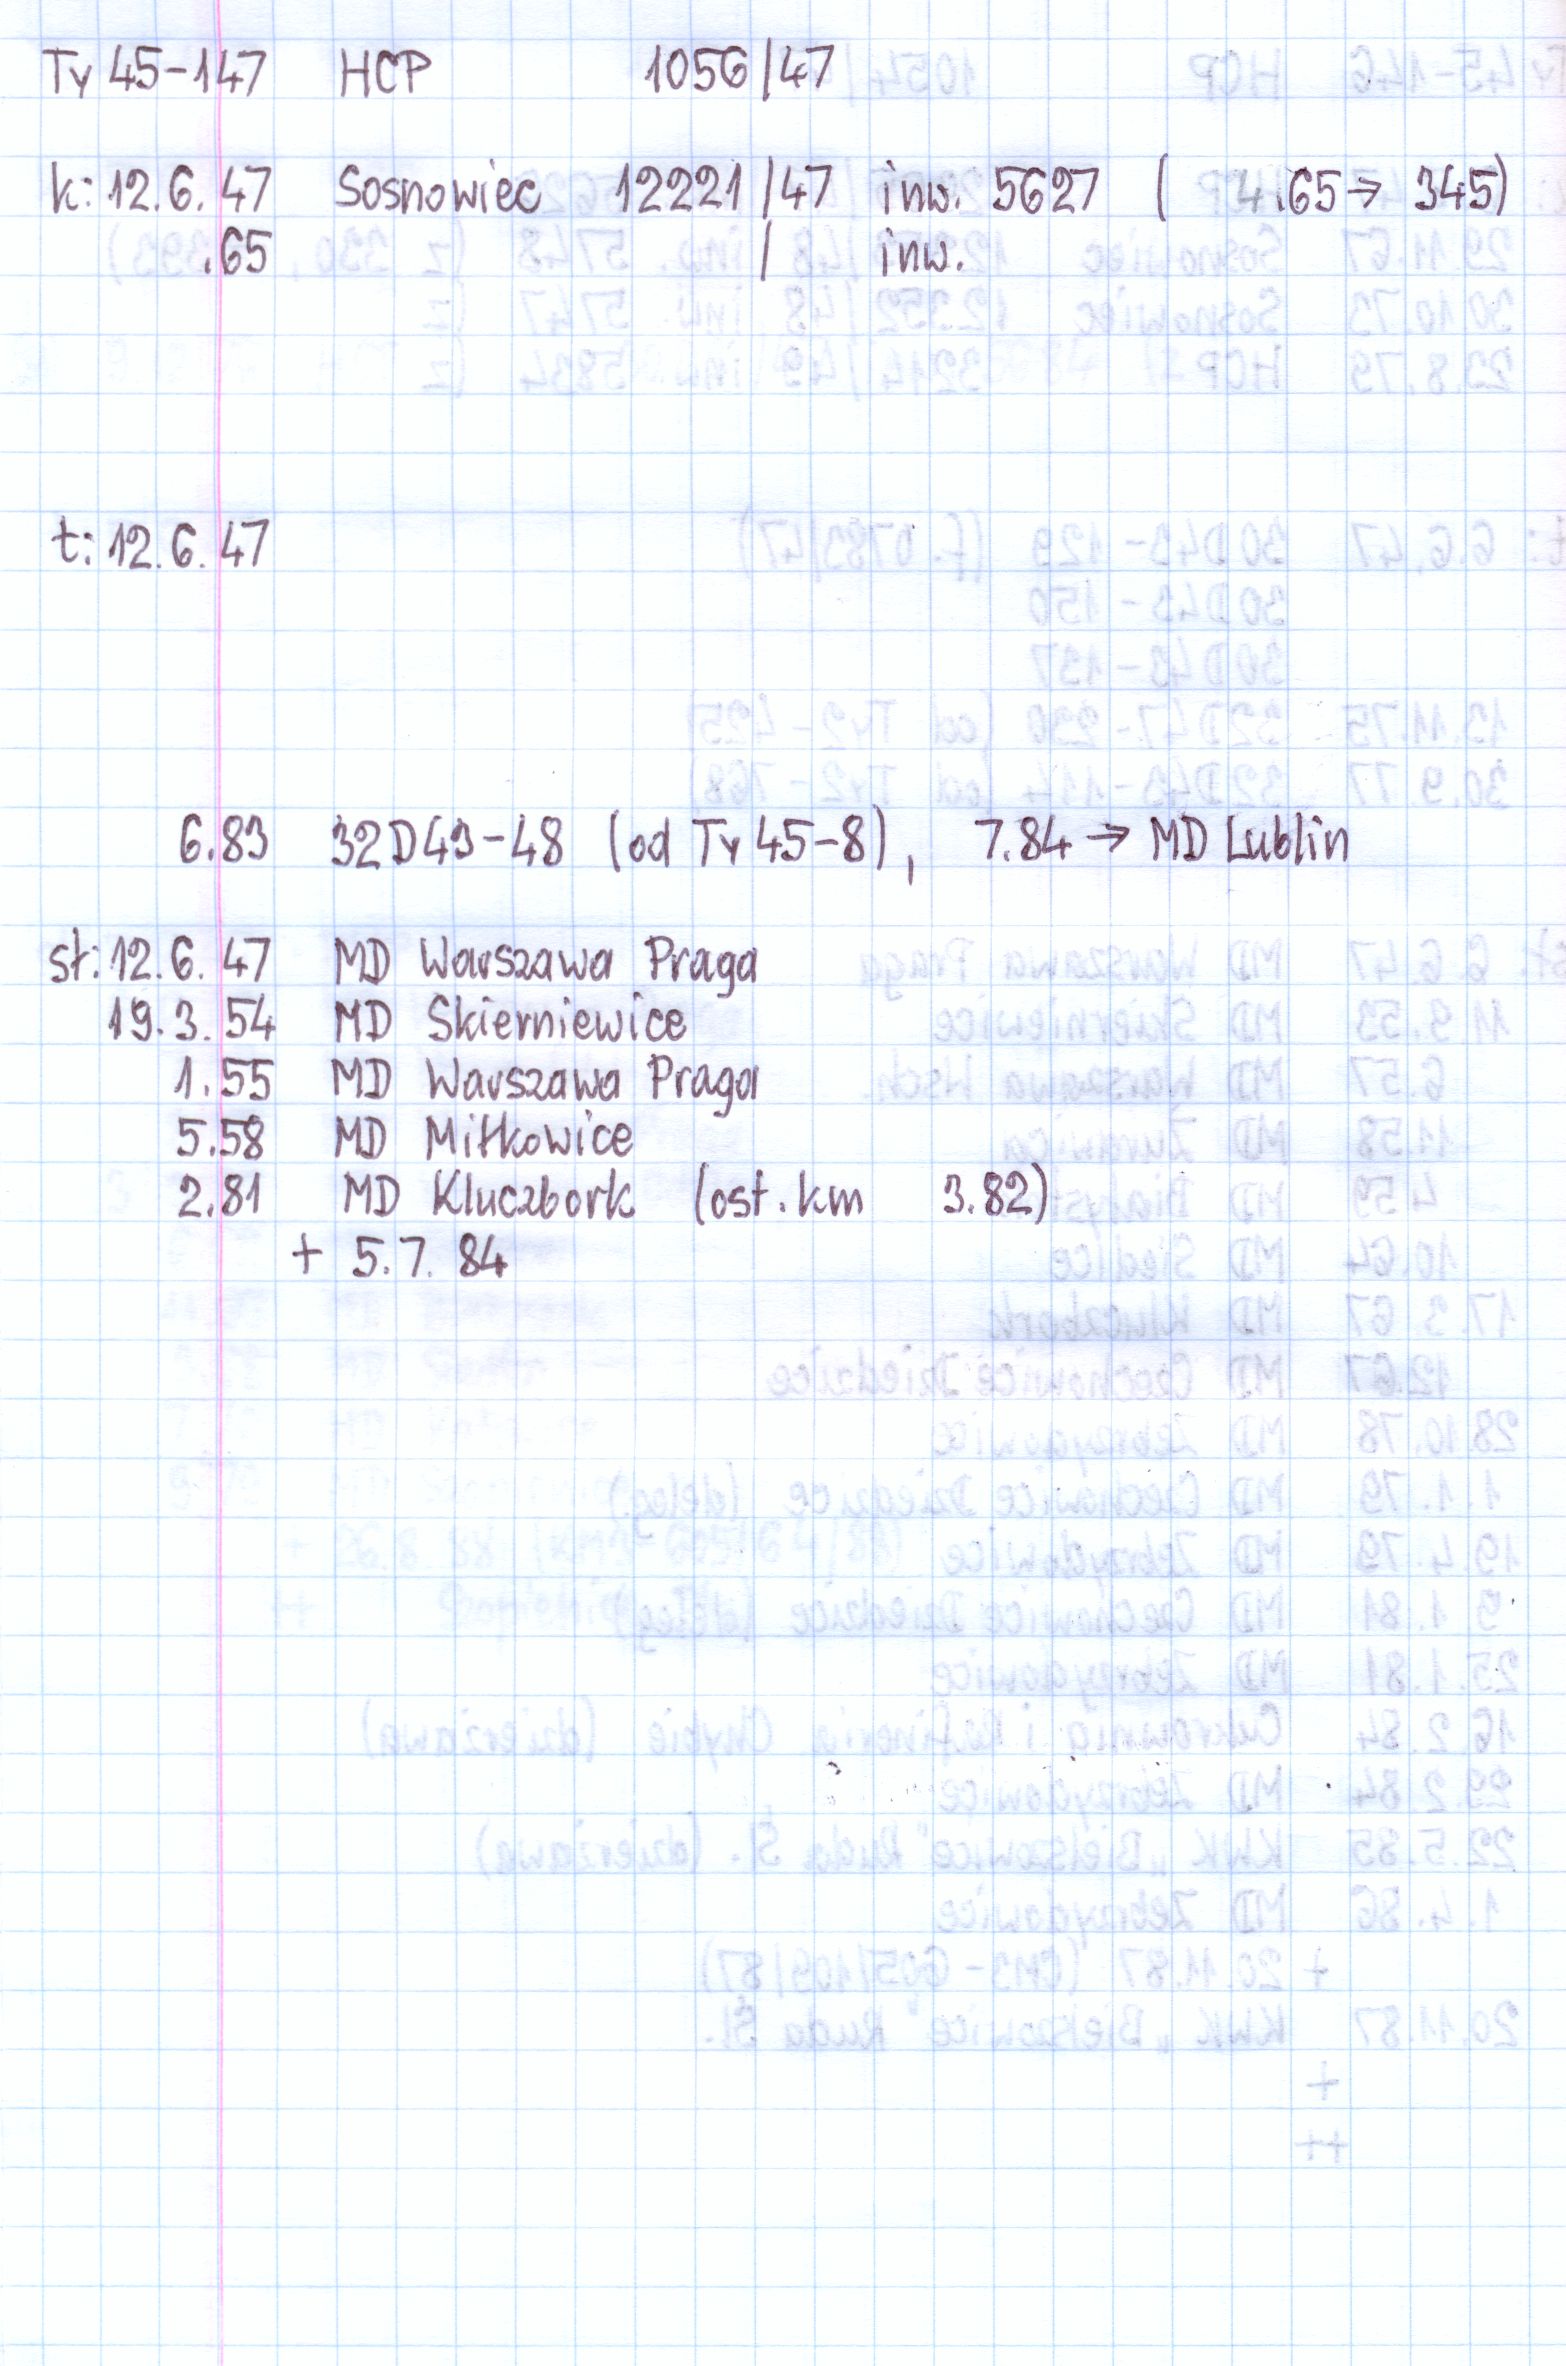 Ty 45-147 HCP 1056/47
k: 12.6.47 Sosnowiec 12221/47 inw. 5627 ( 4.65 → 345)
.65 / inw.
t: 12.6.47
6.83 32D43-48 (od Ty 45-8), 7.84 → MD Lublin
st: 12.6.47 MD Warszawa Praga
19.3.54 MD Skierniewice
1.55 MD Warszawa Praga
5.58 MD Miłkowice
2.81 MD Kluczbork (ost. km 3.82)
+ 5.7.84